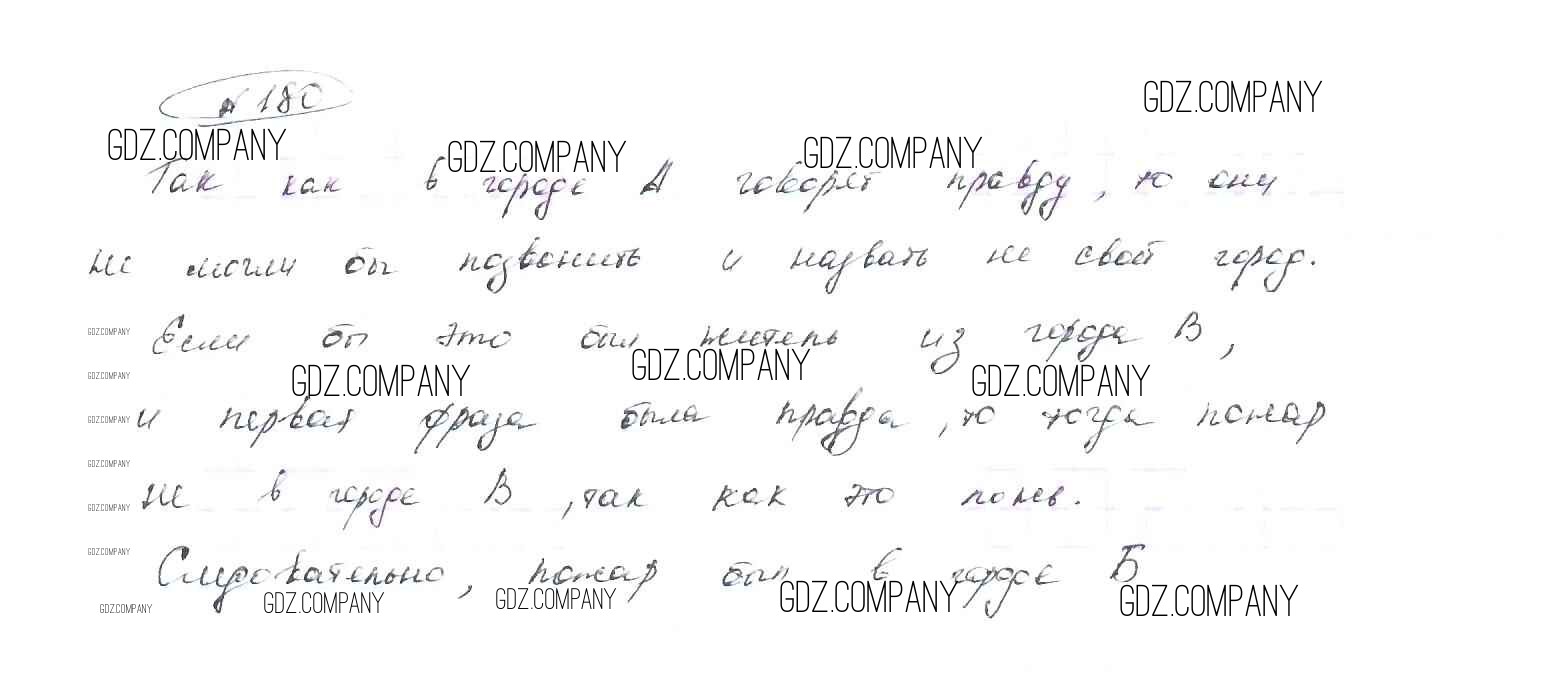 № 180
GDZ.COMPANY
GDZ.COMPANY GDZ.COMPANY GDZ.COMPANY
Так как в городе А говорят правду, то они
не могли бы позвонить и назвать не свой город.
GDZ.COMPANY
Если бы это был житель из города В,
GDZ.COMPANY GDZ.COMPANY GDZ.COMPANY
GDZ.COMPANY
GDZ.COMPANY
и первая фраза была правда, то тогда пожар
GDZ.COMPANY
не в городе В, так как это
GDZ.COMPANY
GDZ.COMPANY
Следовательно, пожар был в городе Б
GDZ.COMPANY GDZ.COMPANY GDZ.COMPANY GDZ.COMPANY GDZ.COMPANY